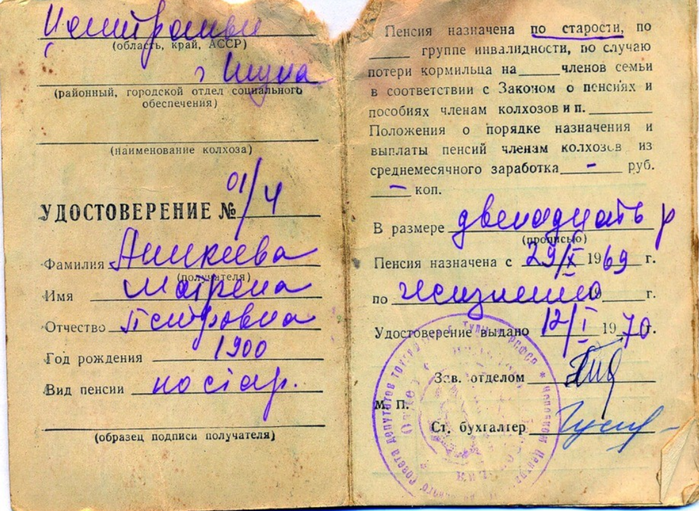 (область, край, АССР)
г
(районный, городской отдел социального
обеспечения)
(наименование колхоза)
УДОСТОВЕРЕНИЕ № 01/4
Фамилия Аникеева
(получателя)
Имя Матрена
Отчество Петровна
Год рождения 1900
Вид пенсии по стар.
(образец подписи получателя)
Пенсия назначена по старости, по
группе инвалидности, по случаю
потери кормильца на членов семьи
в соответствии с Законом о пенсиях и
пособиях членам колхозов и п.
Положения о порядке назначения и
выплаты пенсий членам колхозов из
среднемесячного заработка - руб.
- коп.
В размере двенадцать р
(прописью)
Пенсия назначена с 29/X 1969 г.
по жизненно 19 г.
Удостоверение выдано 12/I 1970 г.
Зав. отделом
М. П.
Ст. бухгалтер